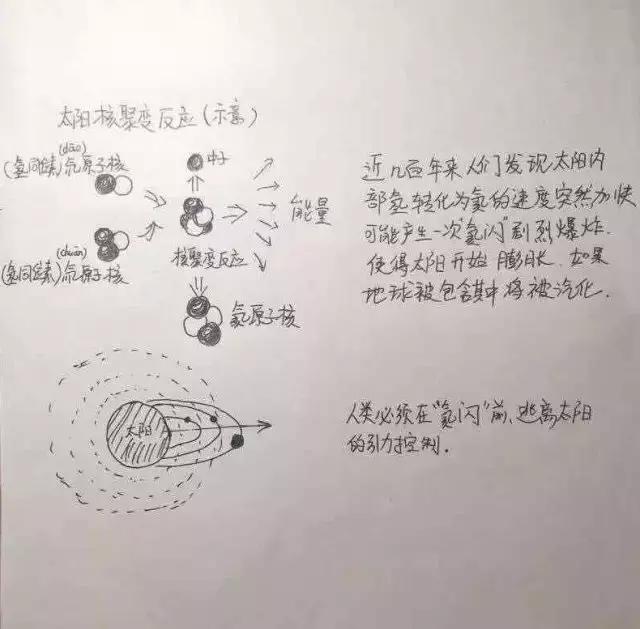 太阳核聚变反应(示意)
(dāo)
(氢同位素)氘原子核
中子
能量
核聚变反应
(chuān)
(氢同位素)氚原子核
氦原子核
近几百年来人们发现太阳内
部氢转化为氦的速度突然加快
可能产生一次"氦闪"剧烈爆炸.
使得太阳开始膨胀.如果
地球被包含其中将被汽化.
太阳
人类必须在"氦闪"前,逃离太阳
的引力控制.